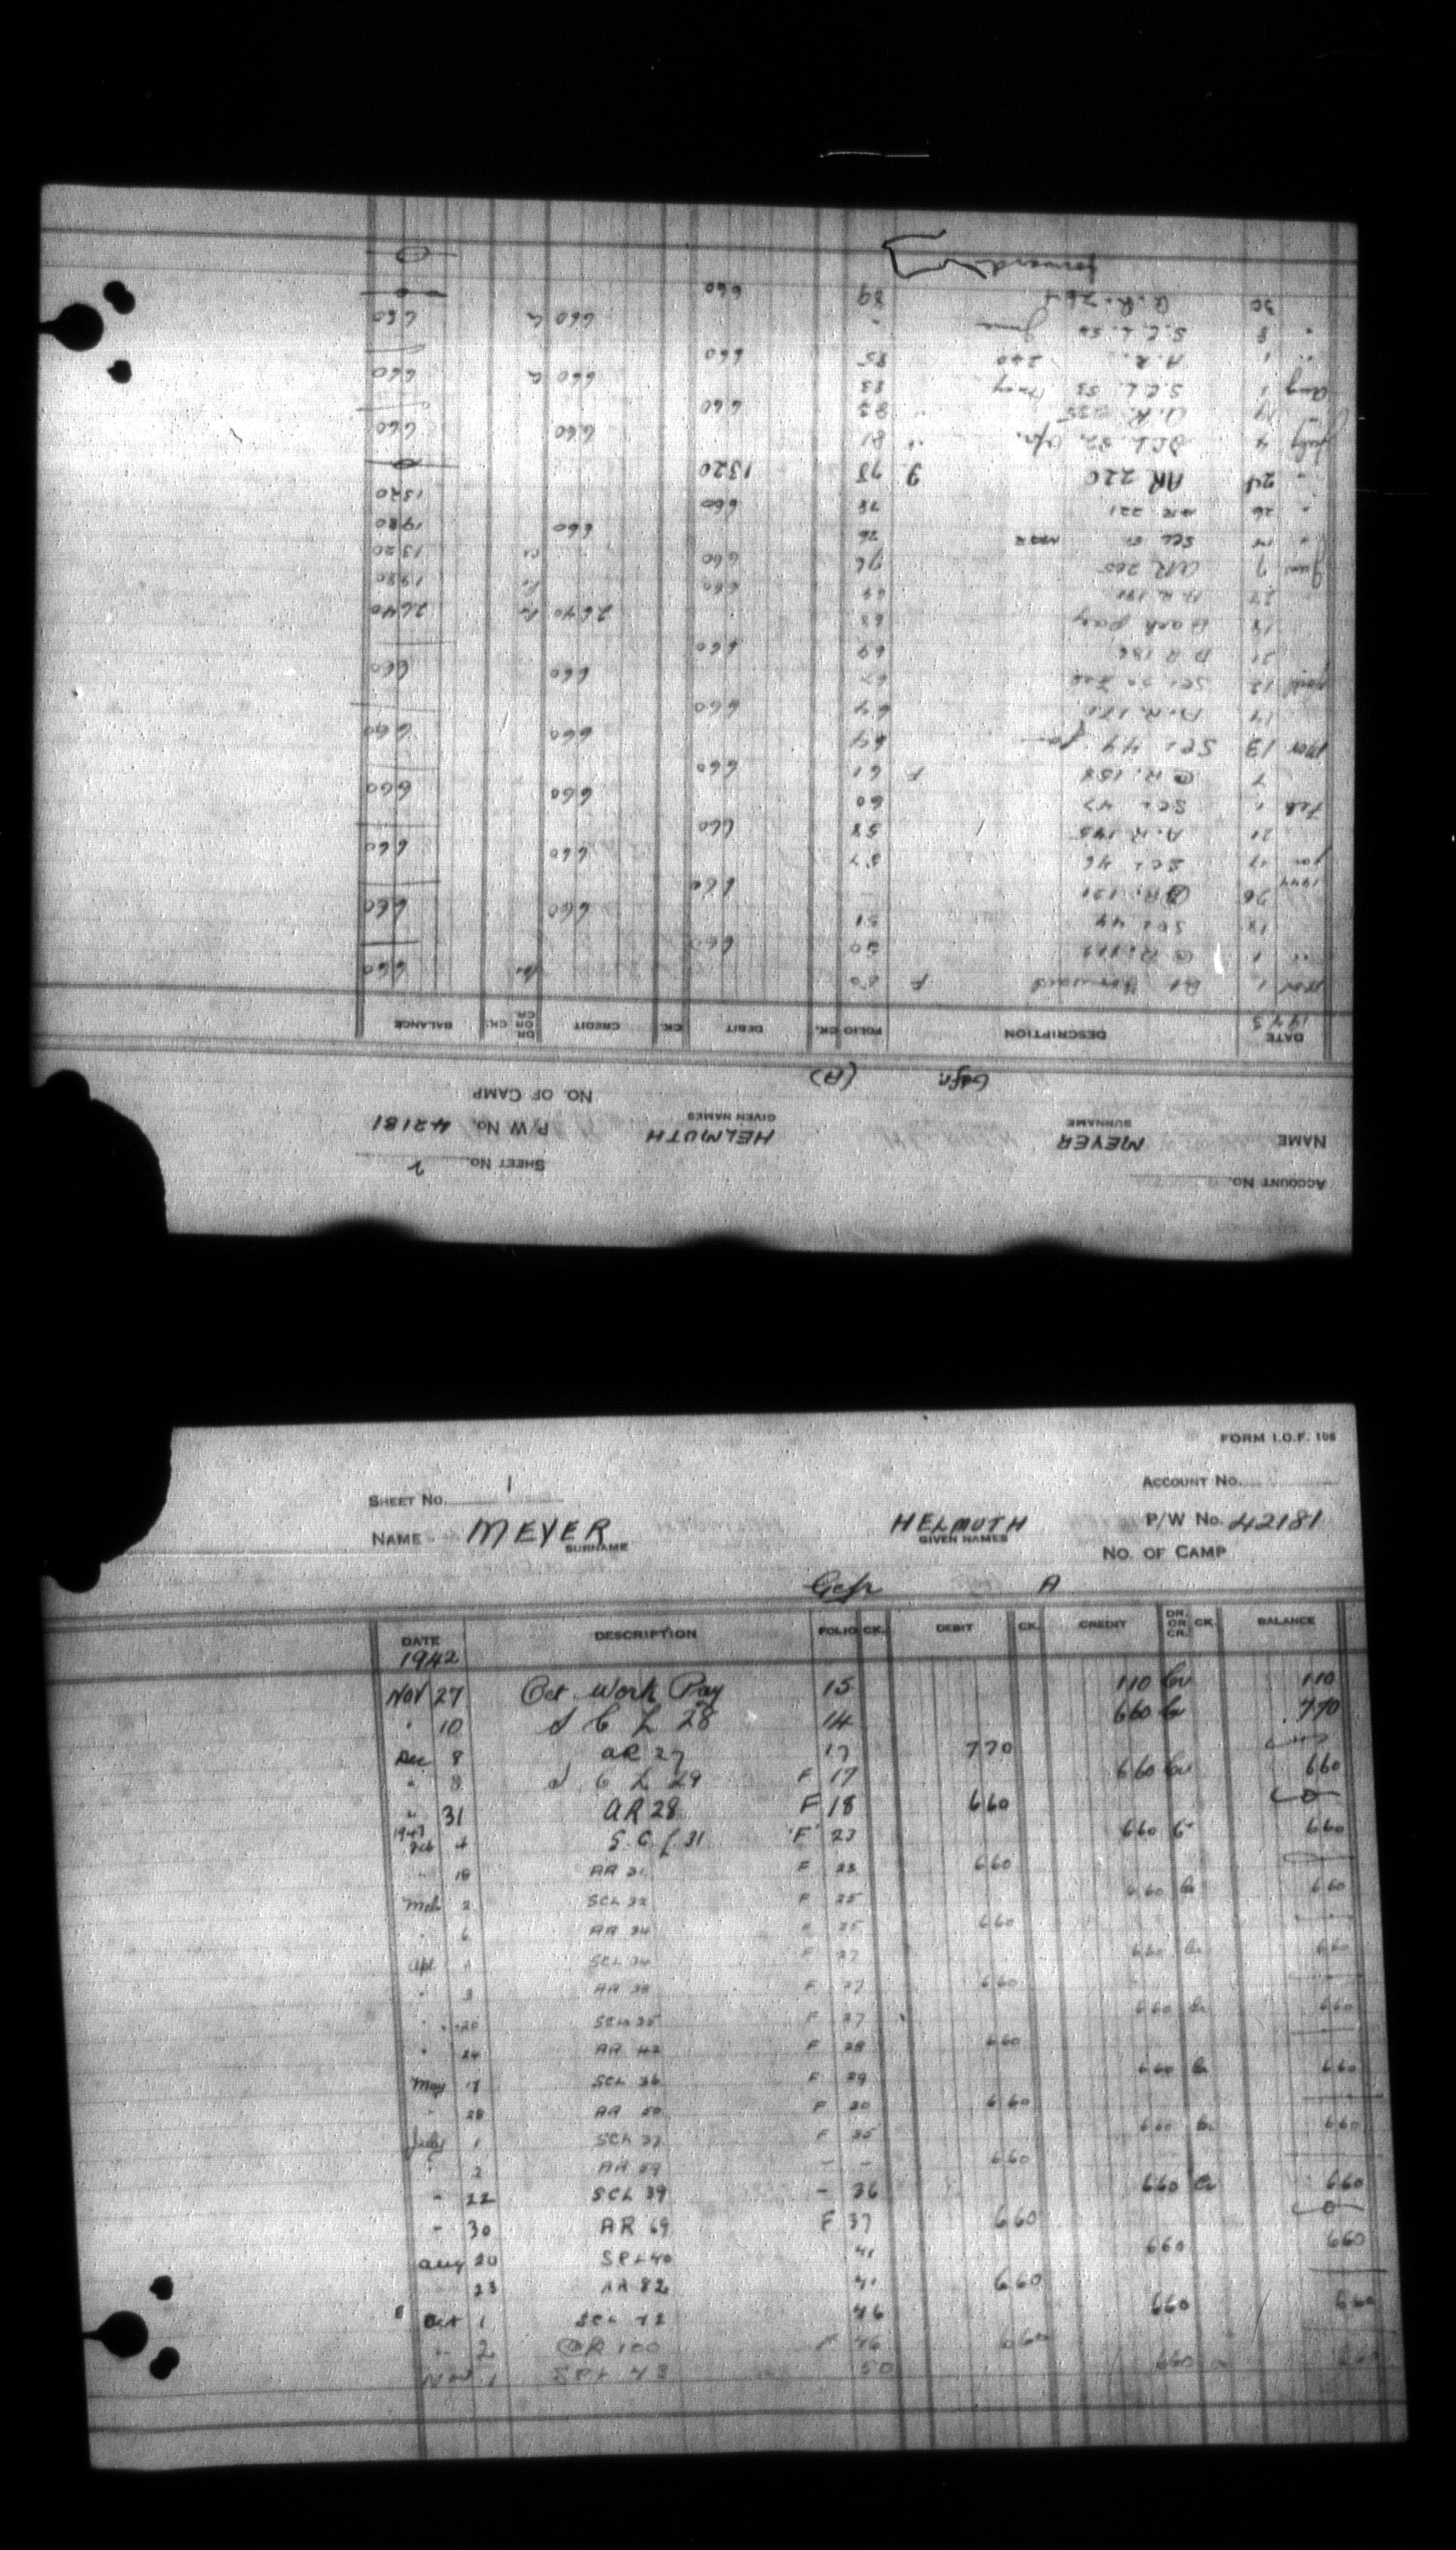 FORM I.O.F. 106
SHEET No. 1 ACCOUNT No.
NAME MEYER HELMUTH P/W No. 42181
SURNAME GIVEN NAMES
NO. OF CAMP
Gefr A
DATE DESCRIPTION FOLIO CK. DEBIT CK. CREDIT DR. OR CR. CK. BALANCE
1942
Nov 27 Oct Work Pay 15 110 Cr 110
" 10 S C L 28 14 660 Cr 770
Dec 8 AR 27 17 770
" 8 S C L 29 F 17 660 Cr 660
" 31 AR 28 F 18 660 0
1943
Feb 4 S.C.L 31 F 23 660 Cr 660
" 18 AR 31 F 23 660
Mch 2 SCL 32 F 25 660 Cr 660
" 6 AR 34 F 25 660
Apl 1 SCL 34 F 27 660 Cr 660
" 3 AR 38 F 27 660
" 20 SCL 35 F 27 660 Cr 660
" 24 AR 42 F 28 660
May 17 SCL 36 F 29 660 Cr 660
" 28 AR 50 F 30 660
July 1 SCL 37 F 35 660 Cr 660
" 2 AR 59 - - 660
" 22 SCL 39 - 36 660 Cr 660
" 30 AR 69 F 37 660 0
Aug 20 SCL 40 41 660 660
23 AR 82 41 660
Oct 1 SCL 42 46 660 660
" 2 AR 100 F 46 660
Nov 1 SCL 43 50 660 660
ACCOUNT No. SHEET No. 2
NAME MEYER HELMUTH P/W No. 42181
SURNAME GIVEN NAMES
NO. OF CAMP
Gefr. (A)
DATE DESCRIPTION FOLIO CK. DEBIT CK. CREDIT DR. OR CR. CK. BALANCE
1943
Nov 1 Bal Forward F 50 Cr 660
" 1 A R. 112 50 660
18 SCL 44 51 660 660
26 A R. 131 - 660
1944
Jan 17 SCL 46 57 660 660
21 A. R 145 58 660
Feb 1 SCL 47 60 660 660
7 A R. 158 F 61 660
Mar 13 SCL 49 Jan 64 660 660
17 A. R. 171 64 660
April 12 SCL 50 Feb 67 660 660
21 A R 186 69 660
18 Back Pay 68 2640 Cr 2640
27 A R 191 69 660 Cr 1980
June 7 AR 205 76 660 Cr 1320
" 14 SCL 51 MAR 76 660 1980
" 26 AR 221 78 660 1320
" 24 AR 220 9 78 1320 0
July 4 SCL 52 Apr. 81 660 660
" 19 A. R. 235 83 660
Aug 1 S.C.L. 53 May 83 660 Cr 660
" 1 A. R. 240 85 660
" 8 S.C.L. 54 June - 660 Cr 660
30 A. R. 264 89 660 0
forward 0